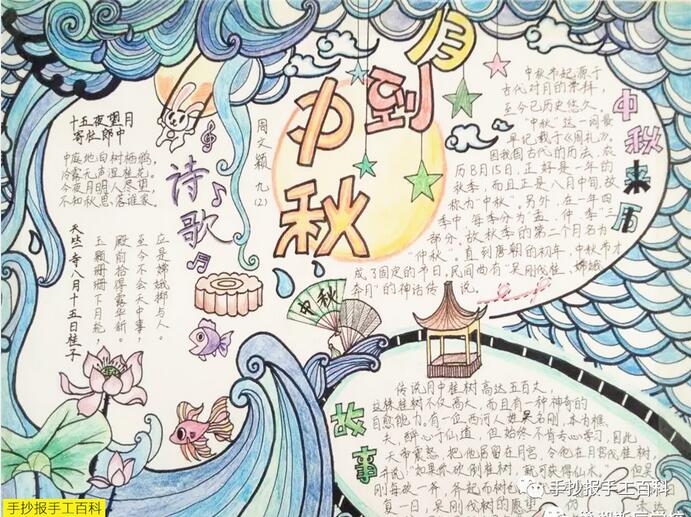 月到中秋
周文颖 九(2)
诗歌
十五夜望月
寄杜郎中
中庭地白树栖鸦,
冷露无声湿桂花。
今夜月明人尽望,
不知秋思落谁家。
天竺寺八月十五日桂子
玉颗珊珊下月轮,
殿前拾得露华新。
至今不会天中事,
应是嫦娥掷与人。
中秋
中秋来历
中秋节起源于
古代对月的崇拜,
至今已历史悠久。
“中秋”这一词最
早记载于《周礼》。
因我国古代的历法,农
历8月15日,正好是一年的
秋季,而且正是八月中旬,故
称为“中秋”。另外,在一年四
季中,每季分为“孟、仲、季”三
部分,故秋季的第二个月名为
“仲秋”。直到唐朝的初年,中秋节才
成了固定的节日,民间尚有“吴刚伐桂、嫦娥
奔月”的神话传说。
故事
传说月中桂树高达五百丈,
这株桂树不仅高大,而且有一种神奇的
自愈能力,有一位西河人姓吴名刚,本为樵
夫,醉心于仙道,但始终不肯专心学习,因此
天帝震怒,把他居留在月宫,令他在月宫伐桂树,
并说:“如果你砍倒桂树,就可获得仙术。”但吴
刚每砍一斧,斧起而树
复一日,吴刚伐树的愿望
未达
手抄报手工百科
手抄报手工百科